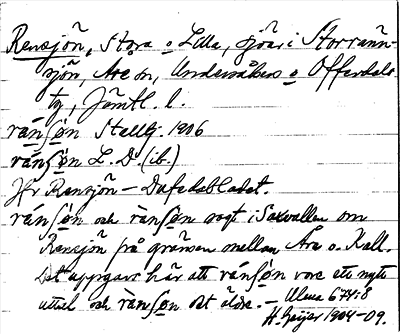 Rensjön, Stora o Lilla, sjöar i Storränn-
sjön, Åre sn, Undersåkers o Offerdals
tg, Jämtl. l.
rä́nʃøn Stellg. 1906
rä́nʃøn L. D. (ib.)
Jfr Rensjön – Dufedsbladet.
rä́nʃøn och rä̀nʃøn sagt i Saxvallen om
Rensjön på gränsen mellan Åre o. Kall.
Det uppgavs här att rä́nʃøn vore ett nytt
uttal och rä̀nʃøn det äldre. – Ulma 674:8
H. Geijer 1904–09.